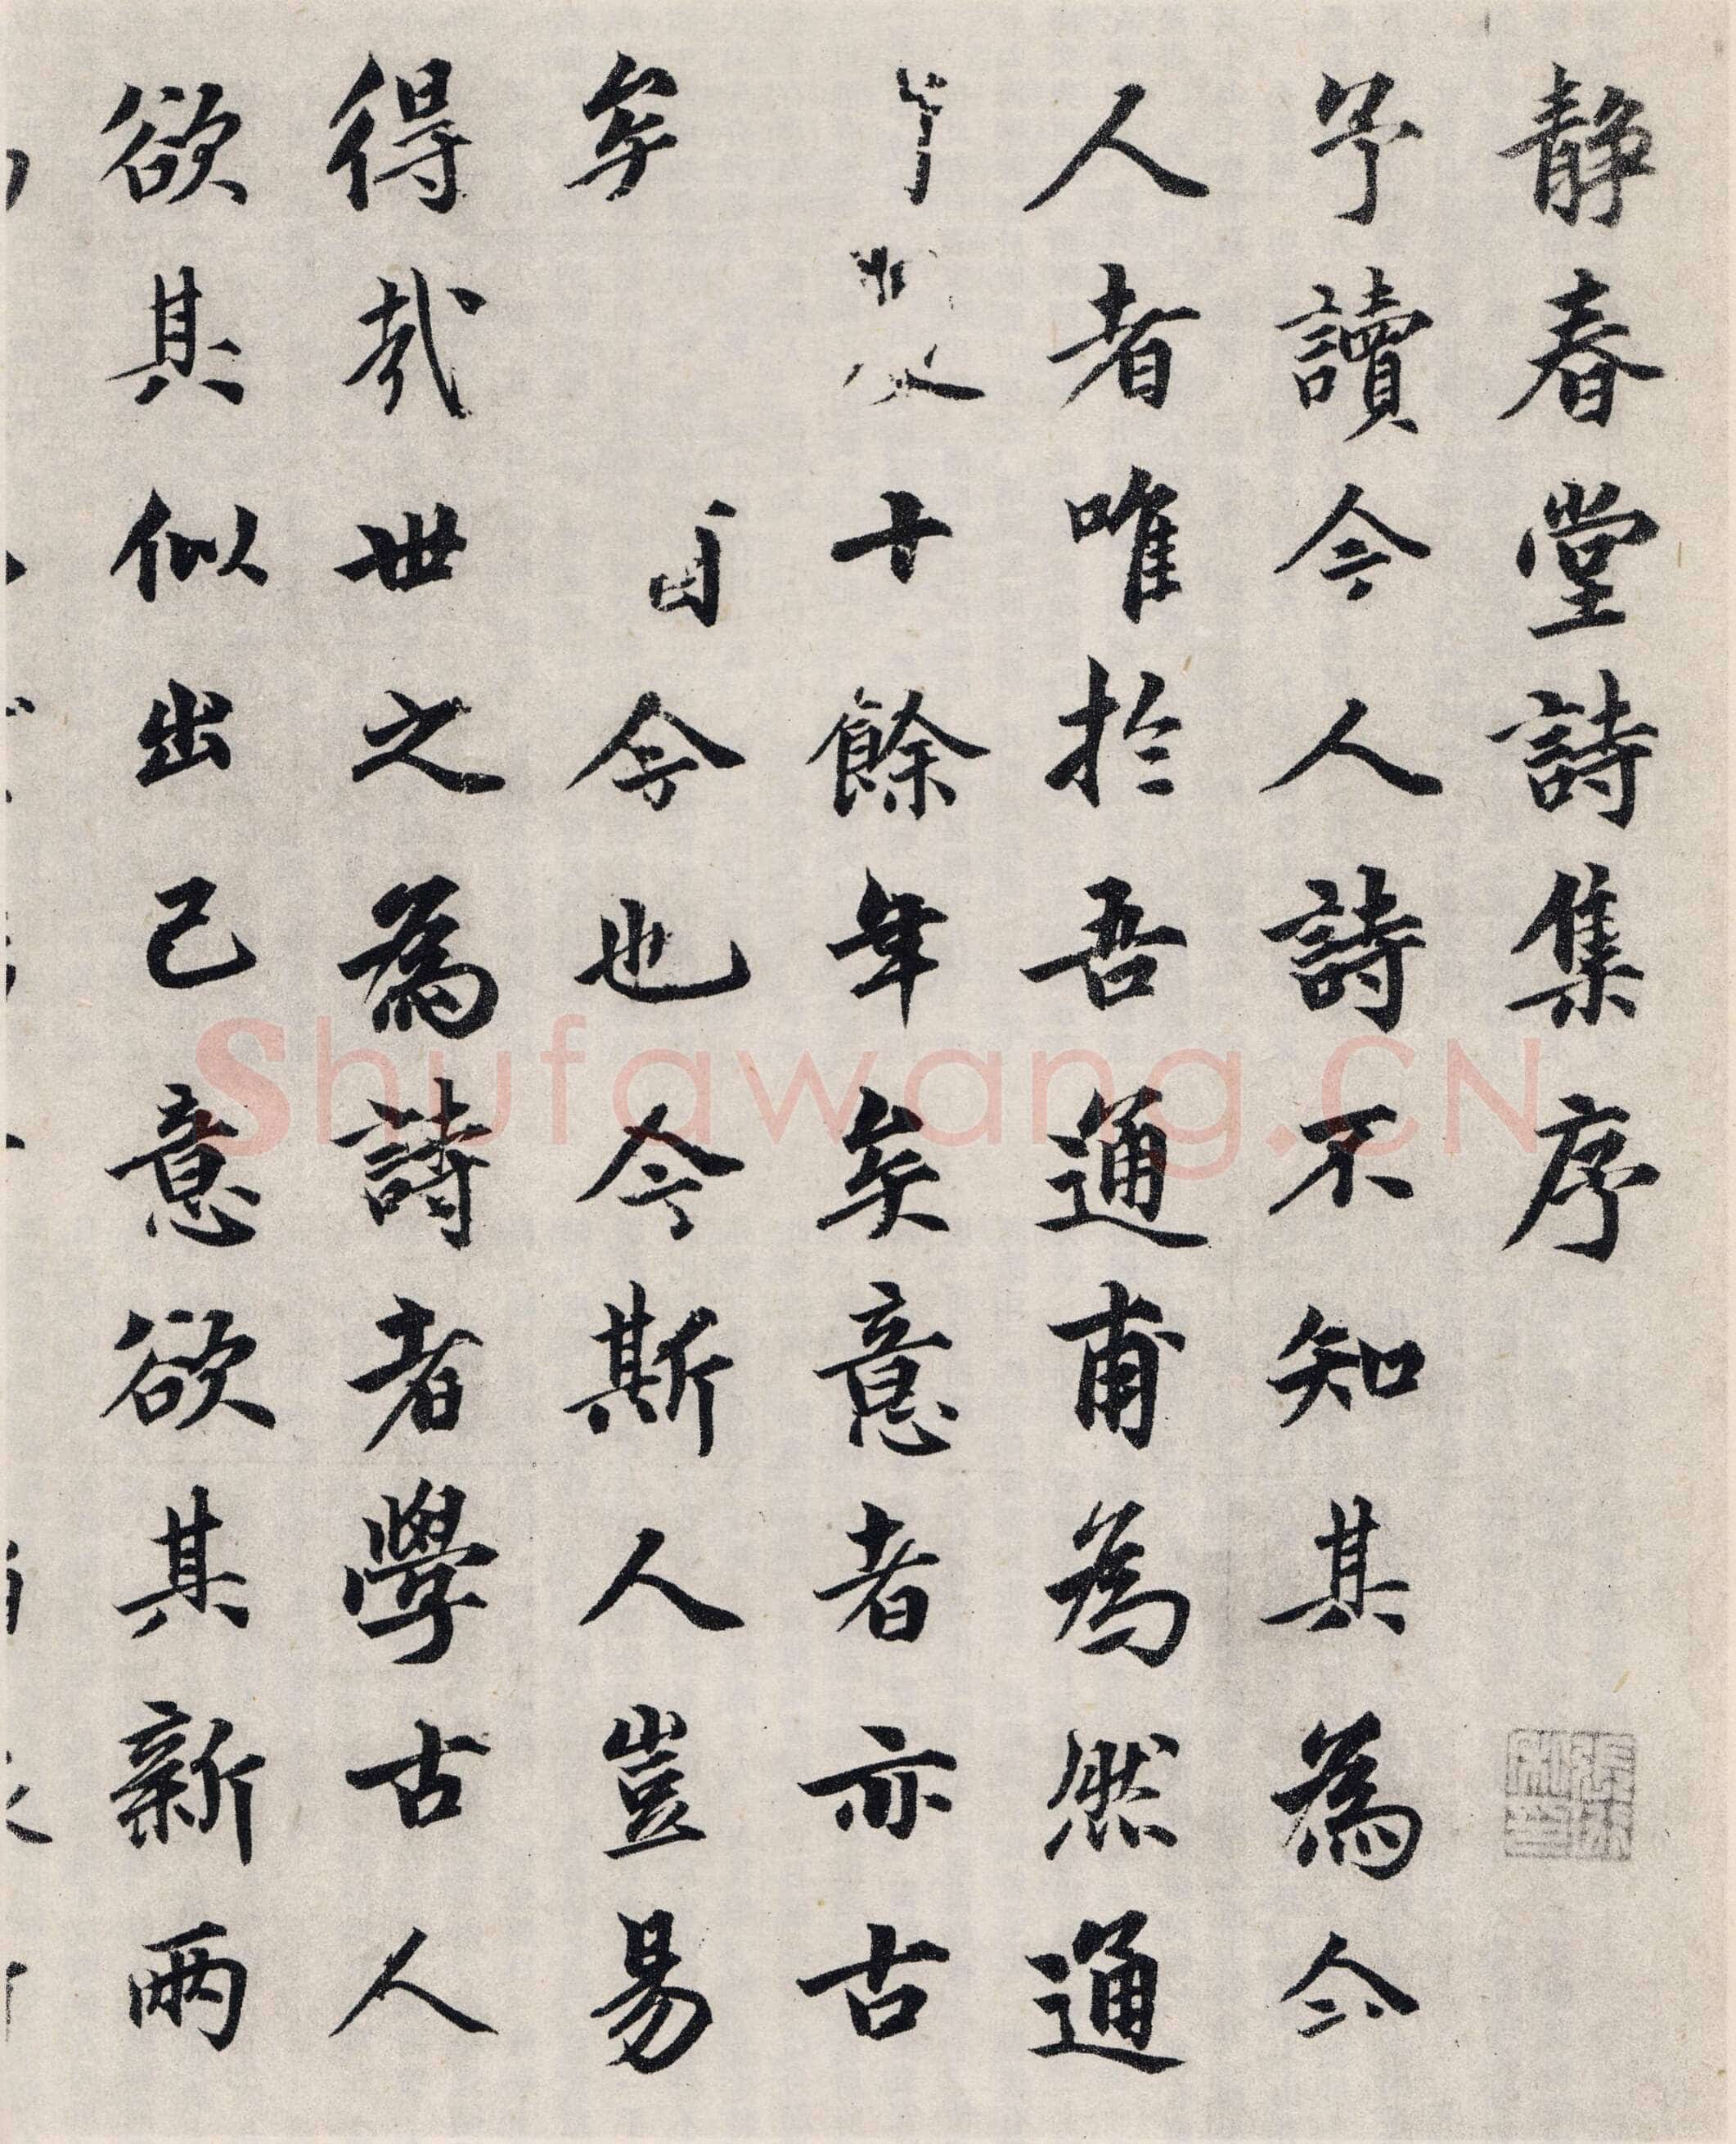 靜春堂詩集序
予讀今人詩不知其為今
人者唯於吾通甫為然通
十餘年矣意者亦古
矣今也今斯人豈易
得哉世之為詩者學古人
欲其似出己意欲其新兩
Shufawang.CN